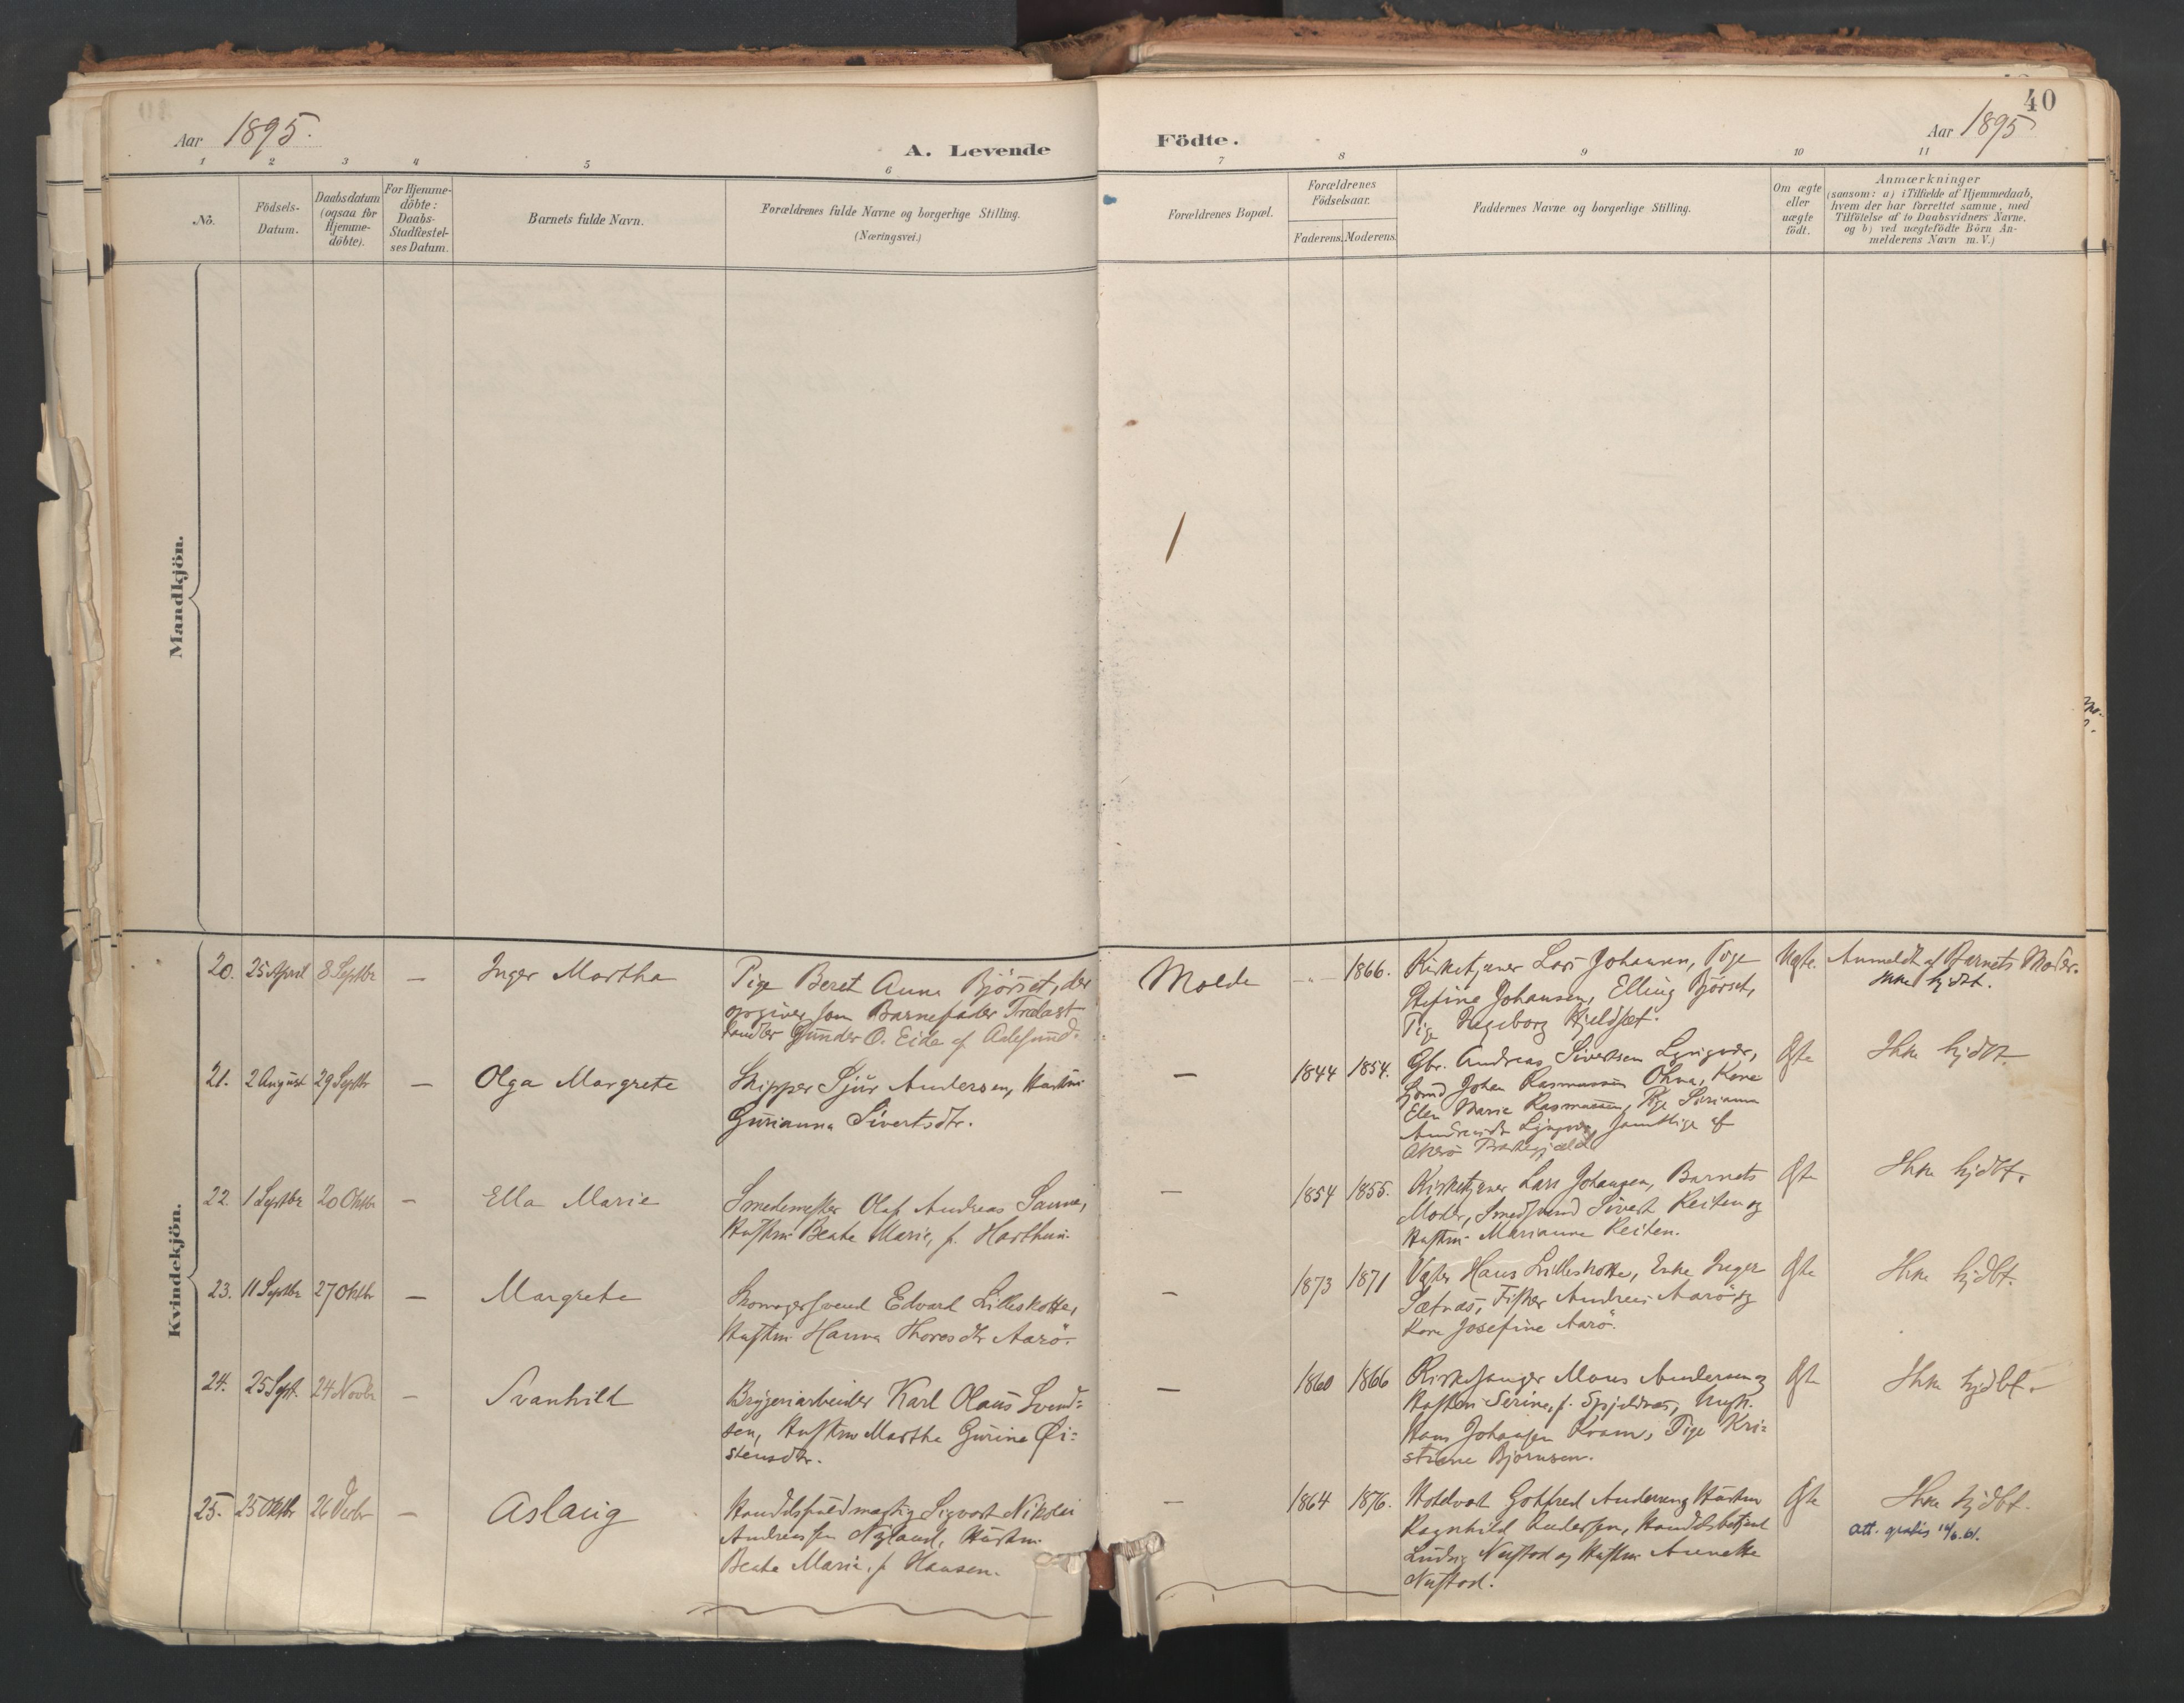 40
Aar 1895.
A. Levende
Födte.
Aar 1895
1 2 3 4 5 6 7 8 9 10 11
Nô.
Födsels-
Datum.
Daabsdatum
(ogsaa for
Hjemme-
döbte).
For Hjemme-
döbte:
Daabs-
Stadfæstel-
ses Datum.
Barnets fulde Navn.
Forældrenes fulde Navne og borgerlige Stilling.
(Næringsvei.)
Forældrenes Bopæl.
Forældrenes
Födselsaar.
Faderens. Moderens.
Faddernes Navne og borgerlige Stilling.
Om ægte
eller
uægte
födt.
Anmærkninger
(saasom: a) i Tilfælde af Hjemmedaab,
hvem der har forrettet samme, med
Tilföielse af to Daabsvidners Navne.
og b) ved uægtefödte Börn An-
melderens Navn m. V.)
Mandkjön.
Kvindekjön.
20. 25 April 8 Septbr — Inger Martha
Pige Beret Anna Björset, der
opgiver som Barnefader Trælast
handler Gunder O. Eide af Aalesund.
Molde
1866.
Kirketjener Lars Johansen, Pige
Stefine Johansen, Elling Björset,
Pige Ingeborg Kjeldset.
Uægte.
Anmeldt af Barnets Moder.
Ikke hjdbt.
21. 2 August 29 Septbr — Olga Margrete
Skipper Sjur Andersen, Hustru
Gurianna Sivertsdtr.
—
1844 1854.
Gbr. Andreas Sivertsen
Johan Rasmussen Ohna, Kone
Elen Marie Rasmussen, Pige
samtlige af
Akerö Præstegjæld
Ægte
Ikke hjdbt
22. 1 Septbr 20 Oktbr — Ella Marie
Smedemester Olaf Andreas Sanne,
Hustru Beate Marie, f.
—
1854 1855.
Kirketjener Lars Johansen, Barnets
Moder, Smedsvend Sivert Reiten og
Hustru Marianne Reiten.
Ægte
Ikke hjdbt.
23. 11 Septbr 27 Oktbr — Margrete
Skomagersvend Edvard Lilleskotte,
Hustru Hanna Thoresdtr Aarö.
—
1873 1871
Vægter Hans Lilleskotte, Enke Inger
Sætnæs, Fisker Andreas Aarö og
Kone Josefine Aarö.
Ægte
Ikke hjdbt.
24. 25 Sept. 24 Novbr — Svanhild
Bryggeriarbeider Karl Olaus Svend-
sen, Hustru Martha Gurine Öi-
stensdtr.
—
1860 1866
Kirkesanger Mons Andersen og
Hustru Serine, f. Spjeldnæs, Ungk.
Hans Johansen Kvam, Pige Kri-
stiane Bjørnsen.
Ægte
Ikke hjdbt.
25. 25 Oktbr 26 Decbr — Aslaug
Handelsfuldmægtig Sigvart Nikolai
Andreassen Nyland, Hustru
Beate Marie, f. Hansen.
—
1864 1876.
Hotelvært Gotfred Andersen og Hustru
Ragnhild Andersen, Handelsbetjent
Ludvig Nustad og Hustru Annette
Nustad.
Ægte
Ikke hjdbt.
Att. gratis 14/6.61.